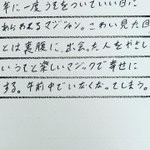 年に一度うそをついていい日に
あらわれるマジシャン。こわい見た目
とは裏腹に、出会った人をやさし
いうそと楽しいマジックで幸せに
する。午前中でいなくなってしまう。